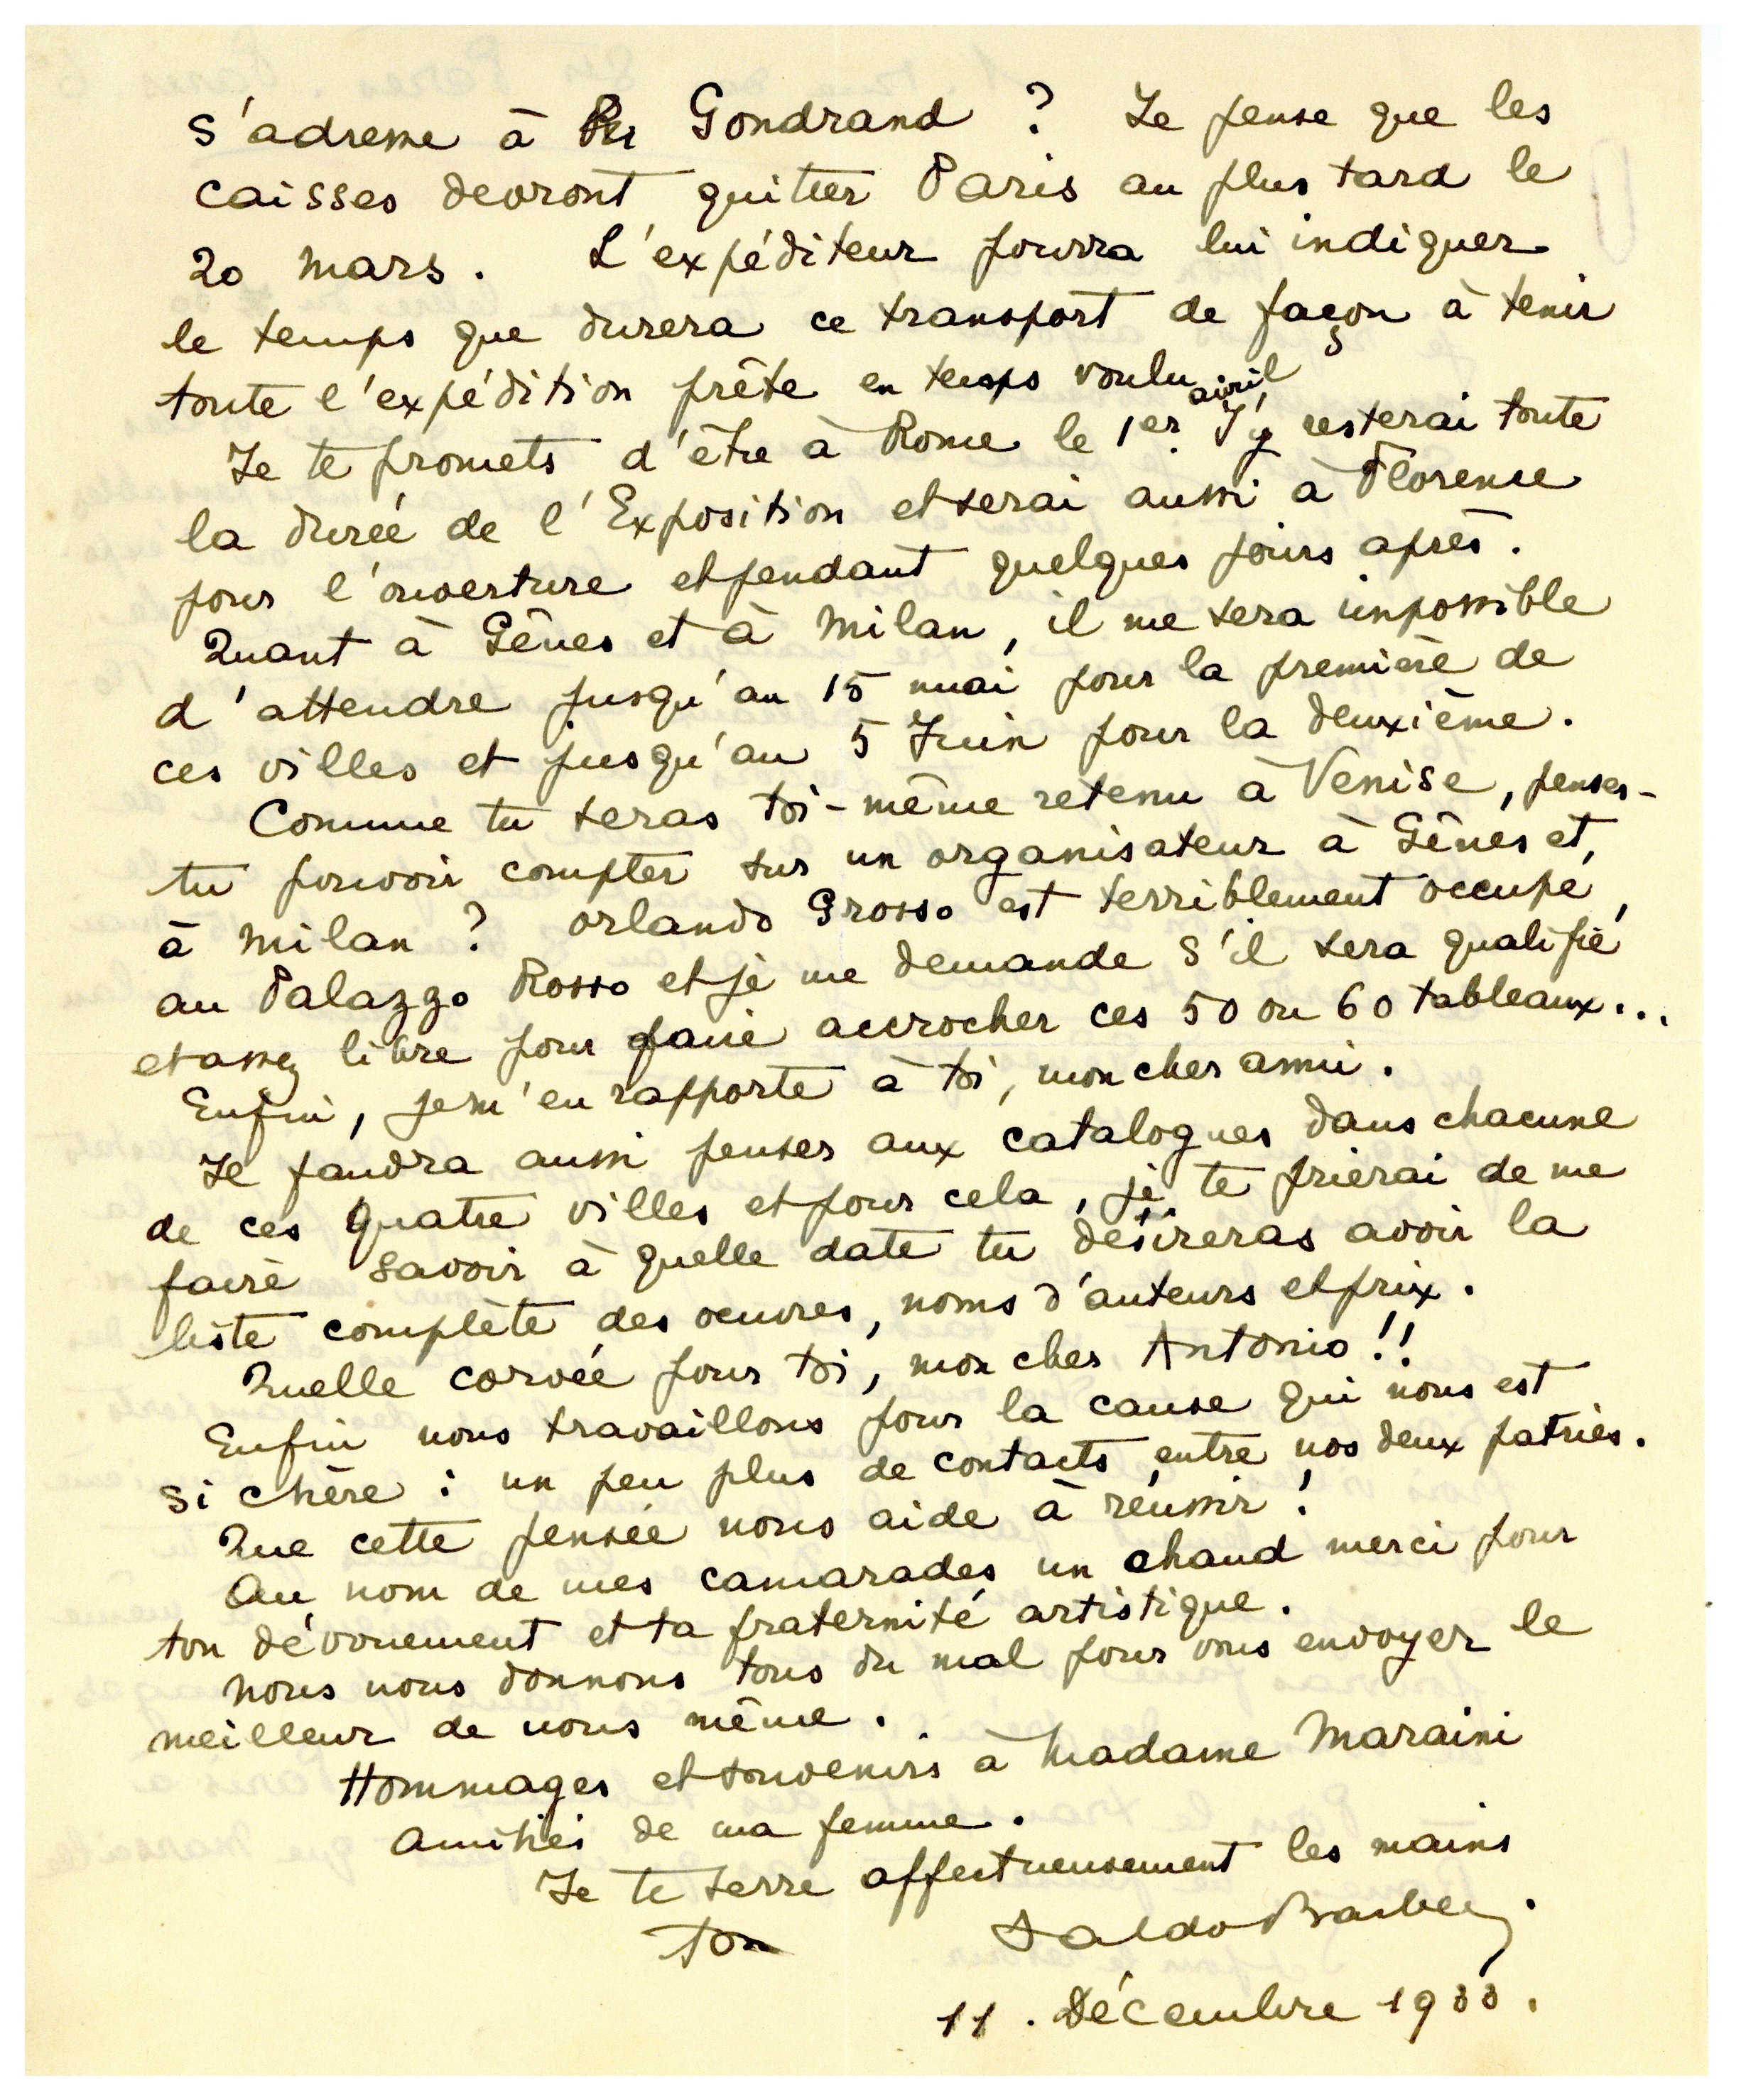 s'adresse à Gondrand ? Je pense que les
caisses devront quitter Paris au plus tard le
20 mars. L'expéditeur pourra lui indiquer
le temps que durera ce transport de façon à tenir
toute l'expédition prête en temps voulu
Je te promets d'être à Rome le 1er avril. J'y resterai toute
la durée de l'Exposition et serai aussi à Florence
pour l'ouverture et pendant quelques jours après.
Quant à Gênes et à Milan, il me sera impossible
d'attendre jusqu'au 15 mai pour la première de
ces villes et jusqu'au 5 Juin pour la deuxième.
Comme tu seras toi-même retenu à Venise, penses-
tu pouvoir compter sur un organisateur à Gênes et
à Milan ? Orlando Grosso est terriblement occupé,
au Palazzo Rosso et je me demande s'il sera qualifié
et assez libre pour faire accrocher ces 50 ou 60 tableaux...
Enfin, je m'en rapporte à toi, mon cher ami.
Il faudra aussi penser aux catalogues dans chacune
de ces quatre villes et pour cela, je te prierai de me
faire savoir à quelle date tu désireras avoir la
liste complète des oeuvres, noms d'auteurs et prix.
Quelle corvée pour toi, mon cher Antonio !!
Enfin nous travaillons pour la cause qui nous est
si chère : un peu plus de contacts entre nos deux patries.
Que cette pensée nous aide à réussir !
Au nom de mes camarades un chaud merci pour
ton dévouement et ta fraternité artistique.
Nous nous donnons tous du mal pour vous envoyer le
meilleur de nous même.
Hommages et souvenirs à Madame Maraini
Amitiés de ma femme.
Je te serre affectueusement les mains
ton Saldo Barbey.
11. Décembre 1933.